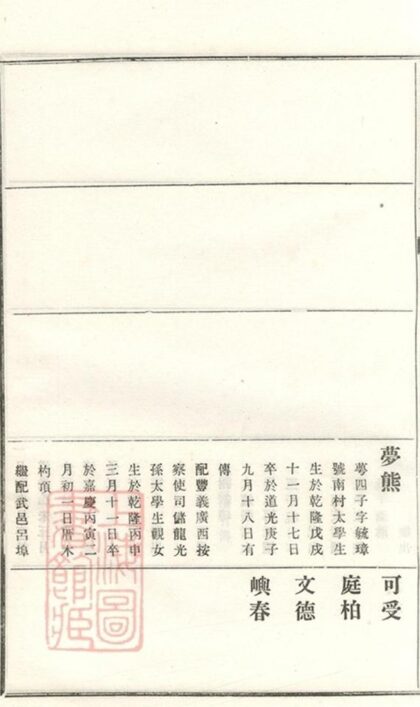 夢熊
蕚四子字毓璋
號南村太學生
生於乾隆戊戌
十一月十七日
卒於道光庚子
九月十八日有
傳
配豐義廣西按
察使司儲龍光
孫太學生觀女
生於乾隆丙申
三月十一日卒
於嘉慶丙寅二
月初一日厝木
杓頂
繼配武邑呂埠
可受
庭柏
文德
嶼春